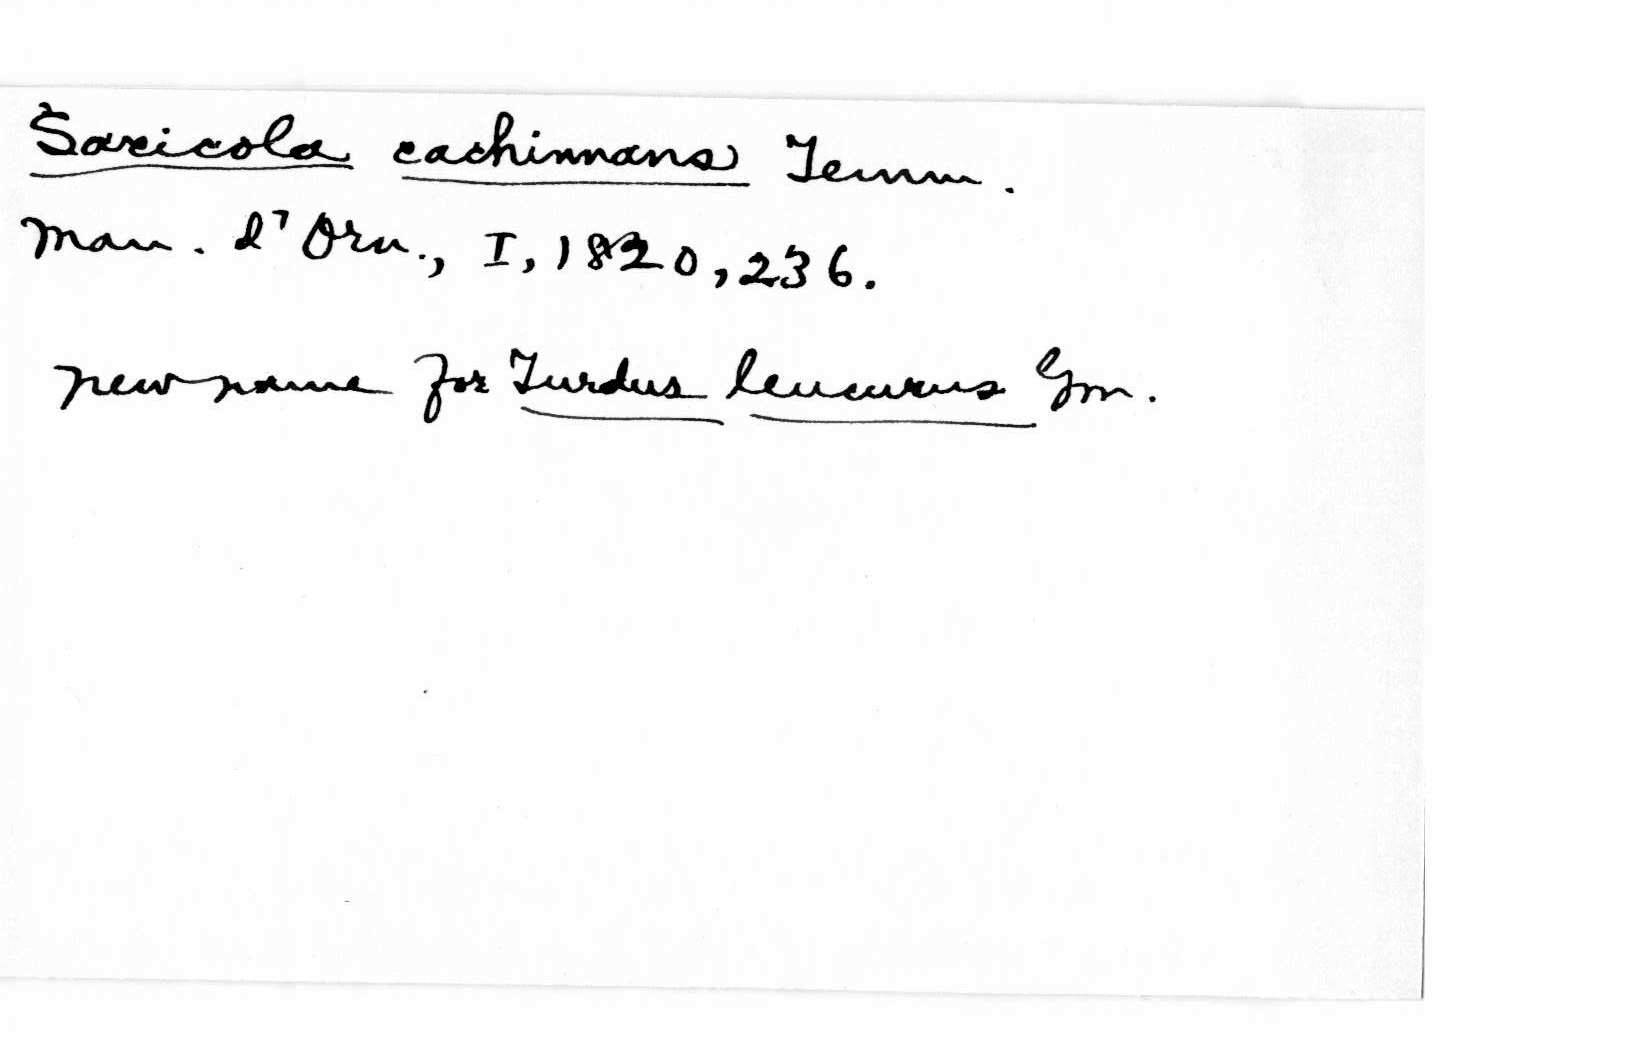 Saxicola cachinnans Temm.
Man. d'Orn., I, 1820, 236.
new name for Turdus leucurus Gm.